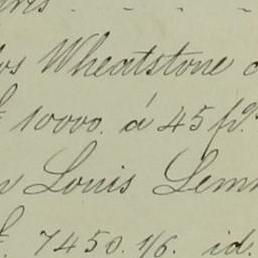 os Wheatstone
10000. á 45 p%.
Louis Lem
7450. 1/6. id.